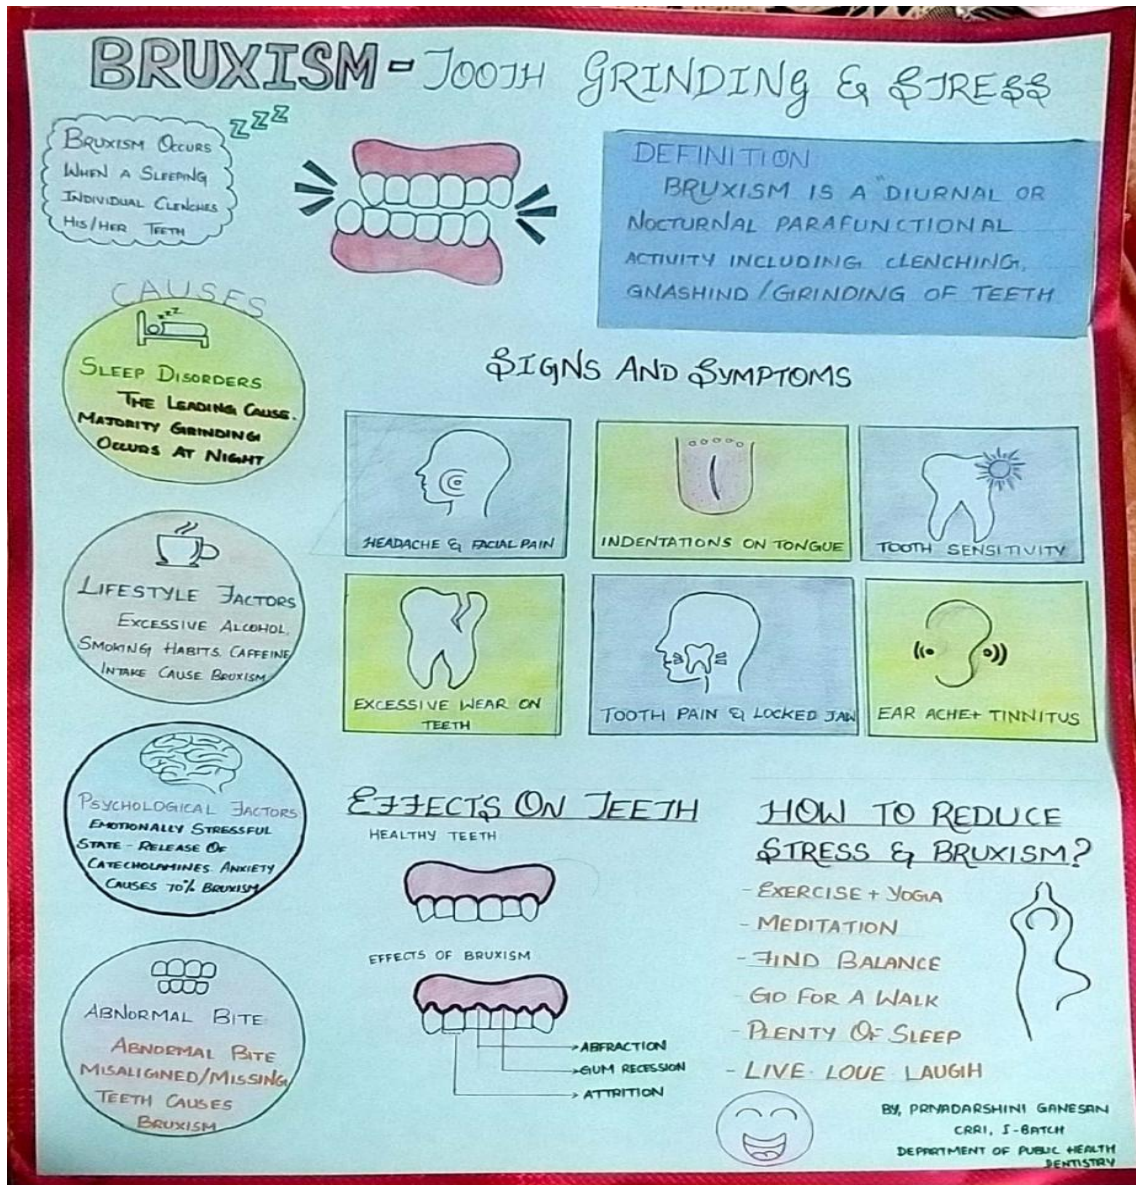 BRUXISM - TOOTH GRINDING & STRESS
zzz
BRUXISM OCCURS
WHEN A SLEEPING
INDIVIDUAL CLENCHES
HIS/HER TEETH
DEFINITION
BRUXISM IS A "DIURNAL OR
NOCTURNAL PARAFUNCTIONAL
ACTIVITY INCLUDING CLENCHING,
GNASHIND/GRINDING OF TEETH
CAUSES
zzz
SLEEP DISORDERS
THE LEADING CAUSE.
MAJORITY GRINDING
OCCURS AT NIGHT
LIFESTYLE FACTORS
EXCESSIVE ALCOHOL,
SMOKING HABITS. CAFFEINE
INTAKE CAUSE BRUXISM
PSYCHOLOGICAL FACTORS
EMOTIONALLY STRESSFUL
STATE - RELEASE OF
CATECHOLAMINES. ANXIETY
CAUSES 70% BRUXISM
ABNORMAL BITE
ABNORMAL BITE
MISALIGINED/MISSING
TEETH CAUSES
BRUXISM
SIGNS AND SYMPTOMS
HEADACHE & FACIAL PAIN
INDENTATIONS ON TONGUE
TOOTH SENSITIVITY
EXCESSIVE WEAR ON
TEETH
TOOTH PAIN & LOCKED JAW
EAR ACHE+ TINNITUS
EFFECTS ON TEETH
HEALTHY TEETH
EFFECTS OF BRUXISM
ABFRACTION
GUM RECESSION
ATTRITION
HOW TO REDUCE
STRESS & BRUXISM?
- EXERCISE + YOGA
- MEDITATION
- FIND BALANCE
- GO FOR A WALK
- PLENTY OF SLEEP
- LIVE. LOVE LAUGH
BY, PRIYADARSHINI GANESAN
CRRI, I-BATCH
DEPARTMENT OF PUBLIC HEALTH
DENTISTRY